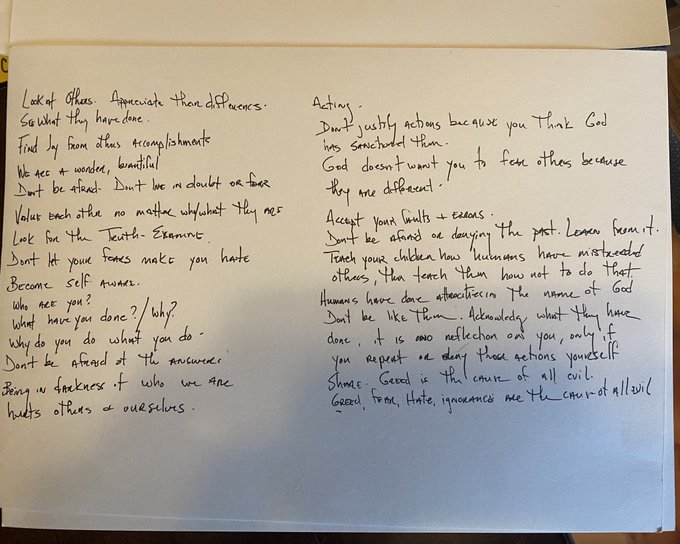 Look at Others. Appreciate their differences.
See What they have done.
Find Joy from others accomplishments
We are a wonder, beautiful
Don't be afraid. Don't live in doubt or fear
Value each other no matter why/what they are
Look for the Truth - Examine
Don't let your fears make you hate
Become self aware.
Who are you?
What have you done?/Why?
Why do you do what you do.
Don't be afraid of the answer.
Being in darkness of who we are
hurts others & ourselves.
Acting.
Don't justify actions because you Think God
has sanctioned them.
God doesn't want you to fear others because
they are different.
Accept your faults + errors.
Don't be afraid or denying the past. Learn from it.
Teach your children how humans have mistreated
others, then teach them how not to do that
Humans have done atrocities in the name of God
Don't be like them. Acknowledge what they have
done, it is no reflection on you, only if
you repeat or deny those actions yourself
Share. Greed is the cause of all evil.
Greed, fear, Hate, ignorance are the cause of all evil
C